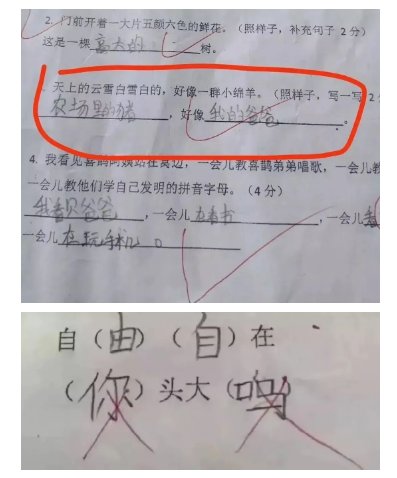 2. 门前开着一大片五颜六色的鲜花。（照样子，补充句子 2 分）
这是一棵高大的 树。
天上的云雪白雪白的，好像一群小绵羊。（照样子，写一写 2
农场里的猪，好像我的爸爸。
4. 我看见喜鹊阿姨站在窝边，一会儿教喜鹊弟弟唱歌，一会儿教
一会儿教他们学自己发明的拼音字母。（4 分）
我看见爸爸，一会儿在看书，一会儿看
一会儿在玩手机。
自（由）（自）在
（你）头大（吗）